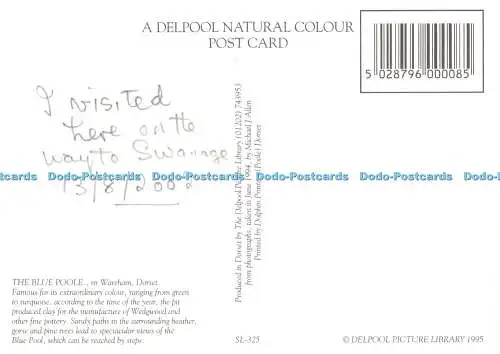 A DELPOOL NATURAL COLOUR
POST CARD
5 028796 000085
I visited
here on the
way to Swanage
13/8/2002
Dodo-Postcards Dodo-Postcards Dodo-Postcards Dodo-Postcards Dodo-Postcards
Produced in Dorset by The Delpool Picture Library (01202) 743953
from photographs taken in June 1994 by Michael J Allen
Printed by Dolphin Printers (Poole) Dorset
THE BLUE POOLE.., nr Wareham, Dorset.
Famous for its extraordinary colour, ranging from green
to turquoise, according to the time of the year, the pit
produced clay for the manufacture of Wedgwood and
other fine pottery. Sandy paths in the surrounding heather,
gorse and pine trees lead to spectacular views of the
Blue Pool, which can be reached by steps.
SL-325
© DELPOOL PICTURE LIBRARY 1995